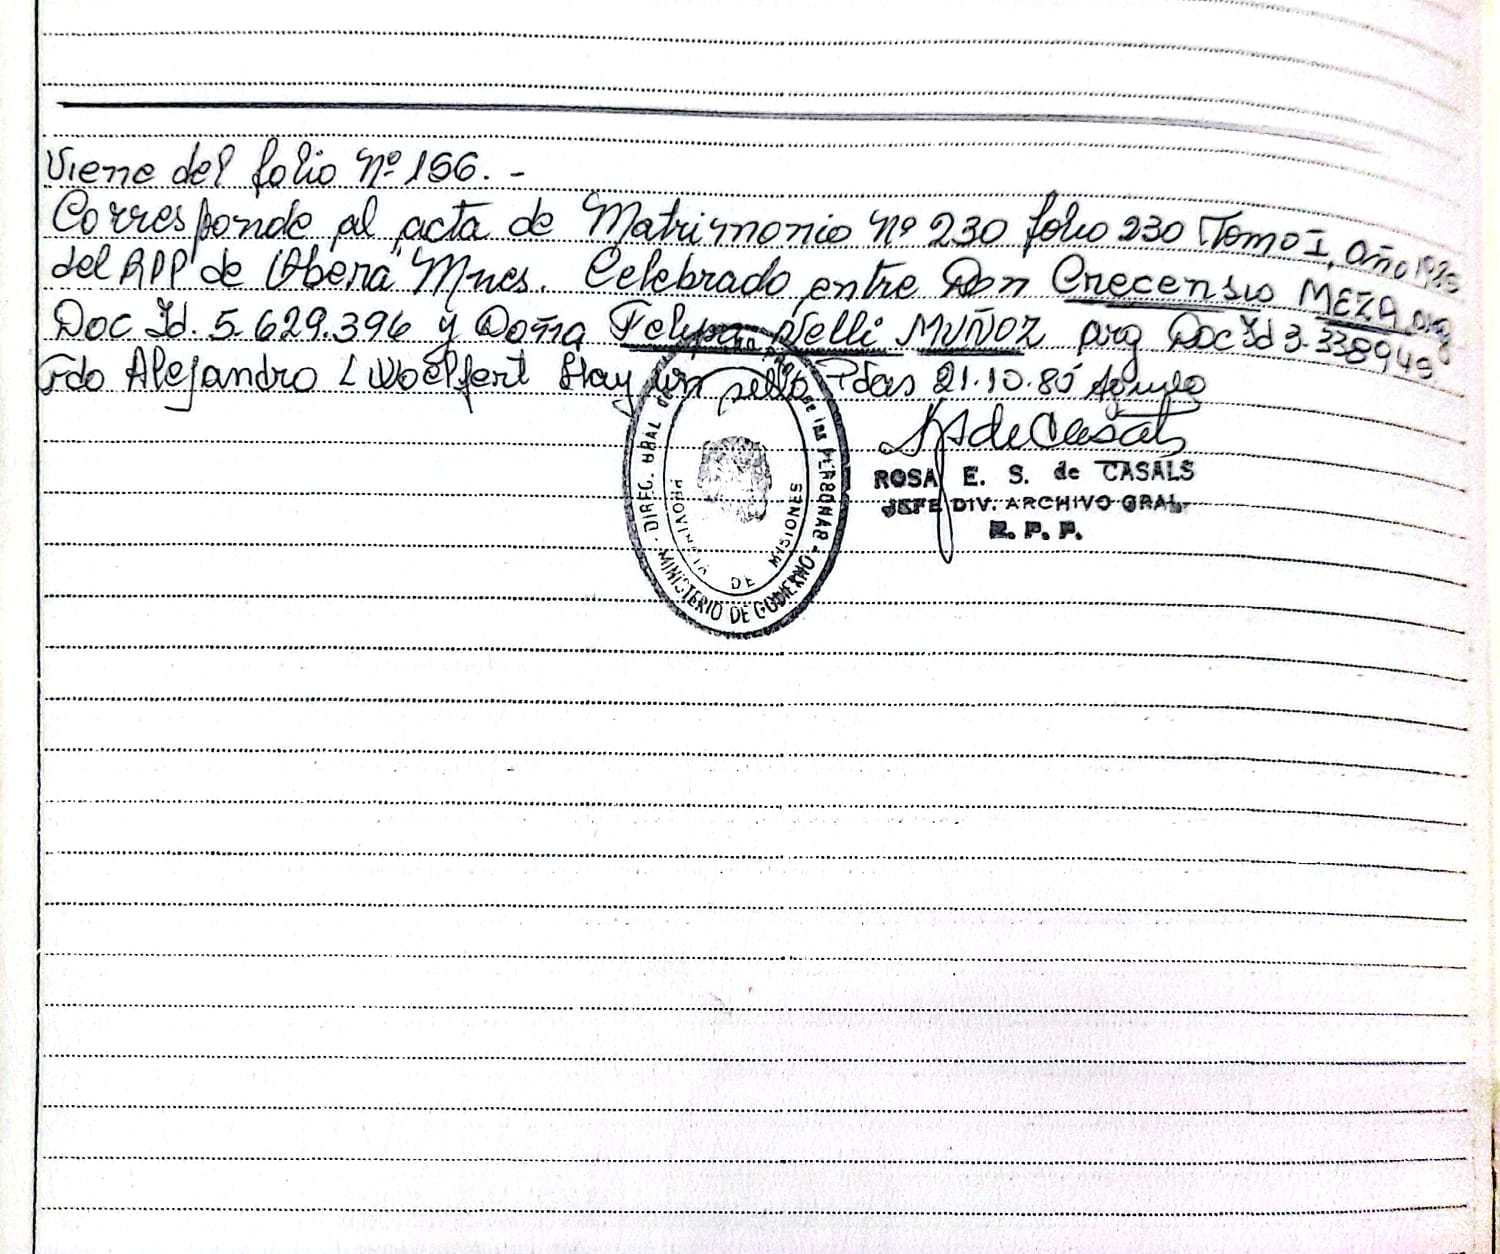 Viene del folio Nº 156. -
Corresponde al acta de Matrimonio Nº 230 folio 230 Tomo I, Año 1985
del RPP de Oberá Mnes. Celebrado entre Don Crecensio MEZA arg
Doc Id. 5.629.396 y Doña Felipa Nelli MUÑOZ arg Doc Id 3.338949
Fdo Alejandro L Woelfert Hay un sello Pdas 21.10.85
ROSA E. S. de CASALS
JEFE DIV. ARCHIVO GRAL.
R. P. P.
DIREC. GRAL DE LAS PERSONAS
PROVINCIA DE MISIONES
MINISTERIO DE GOBIERNO